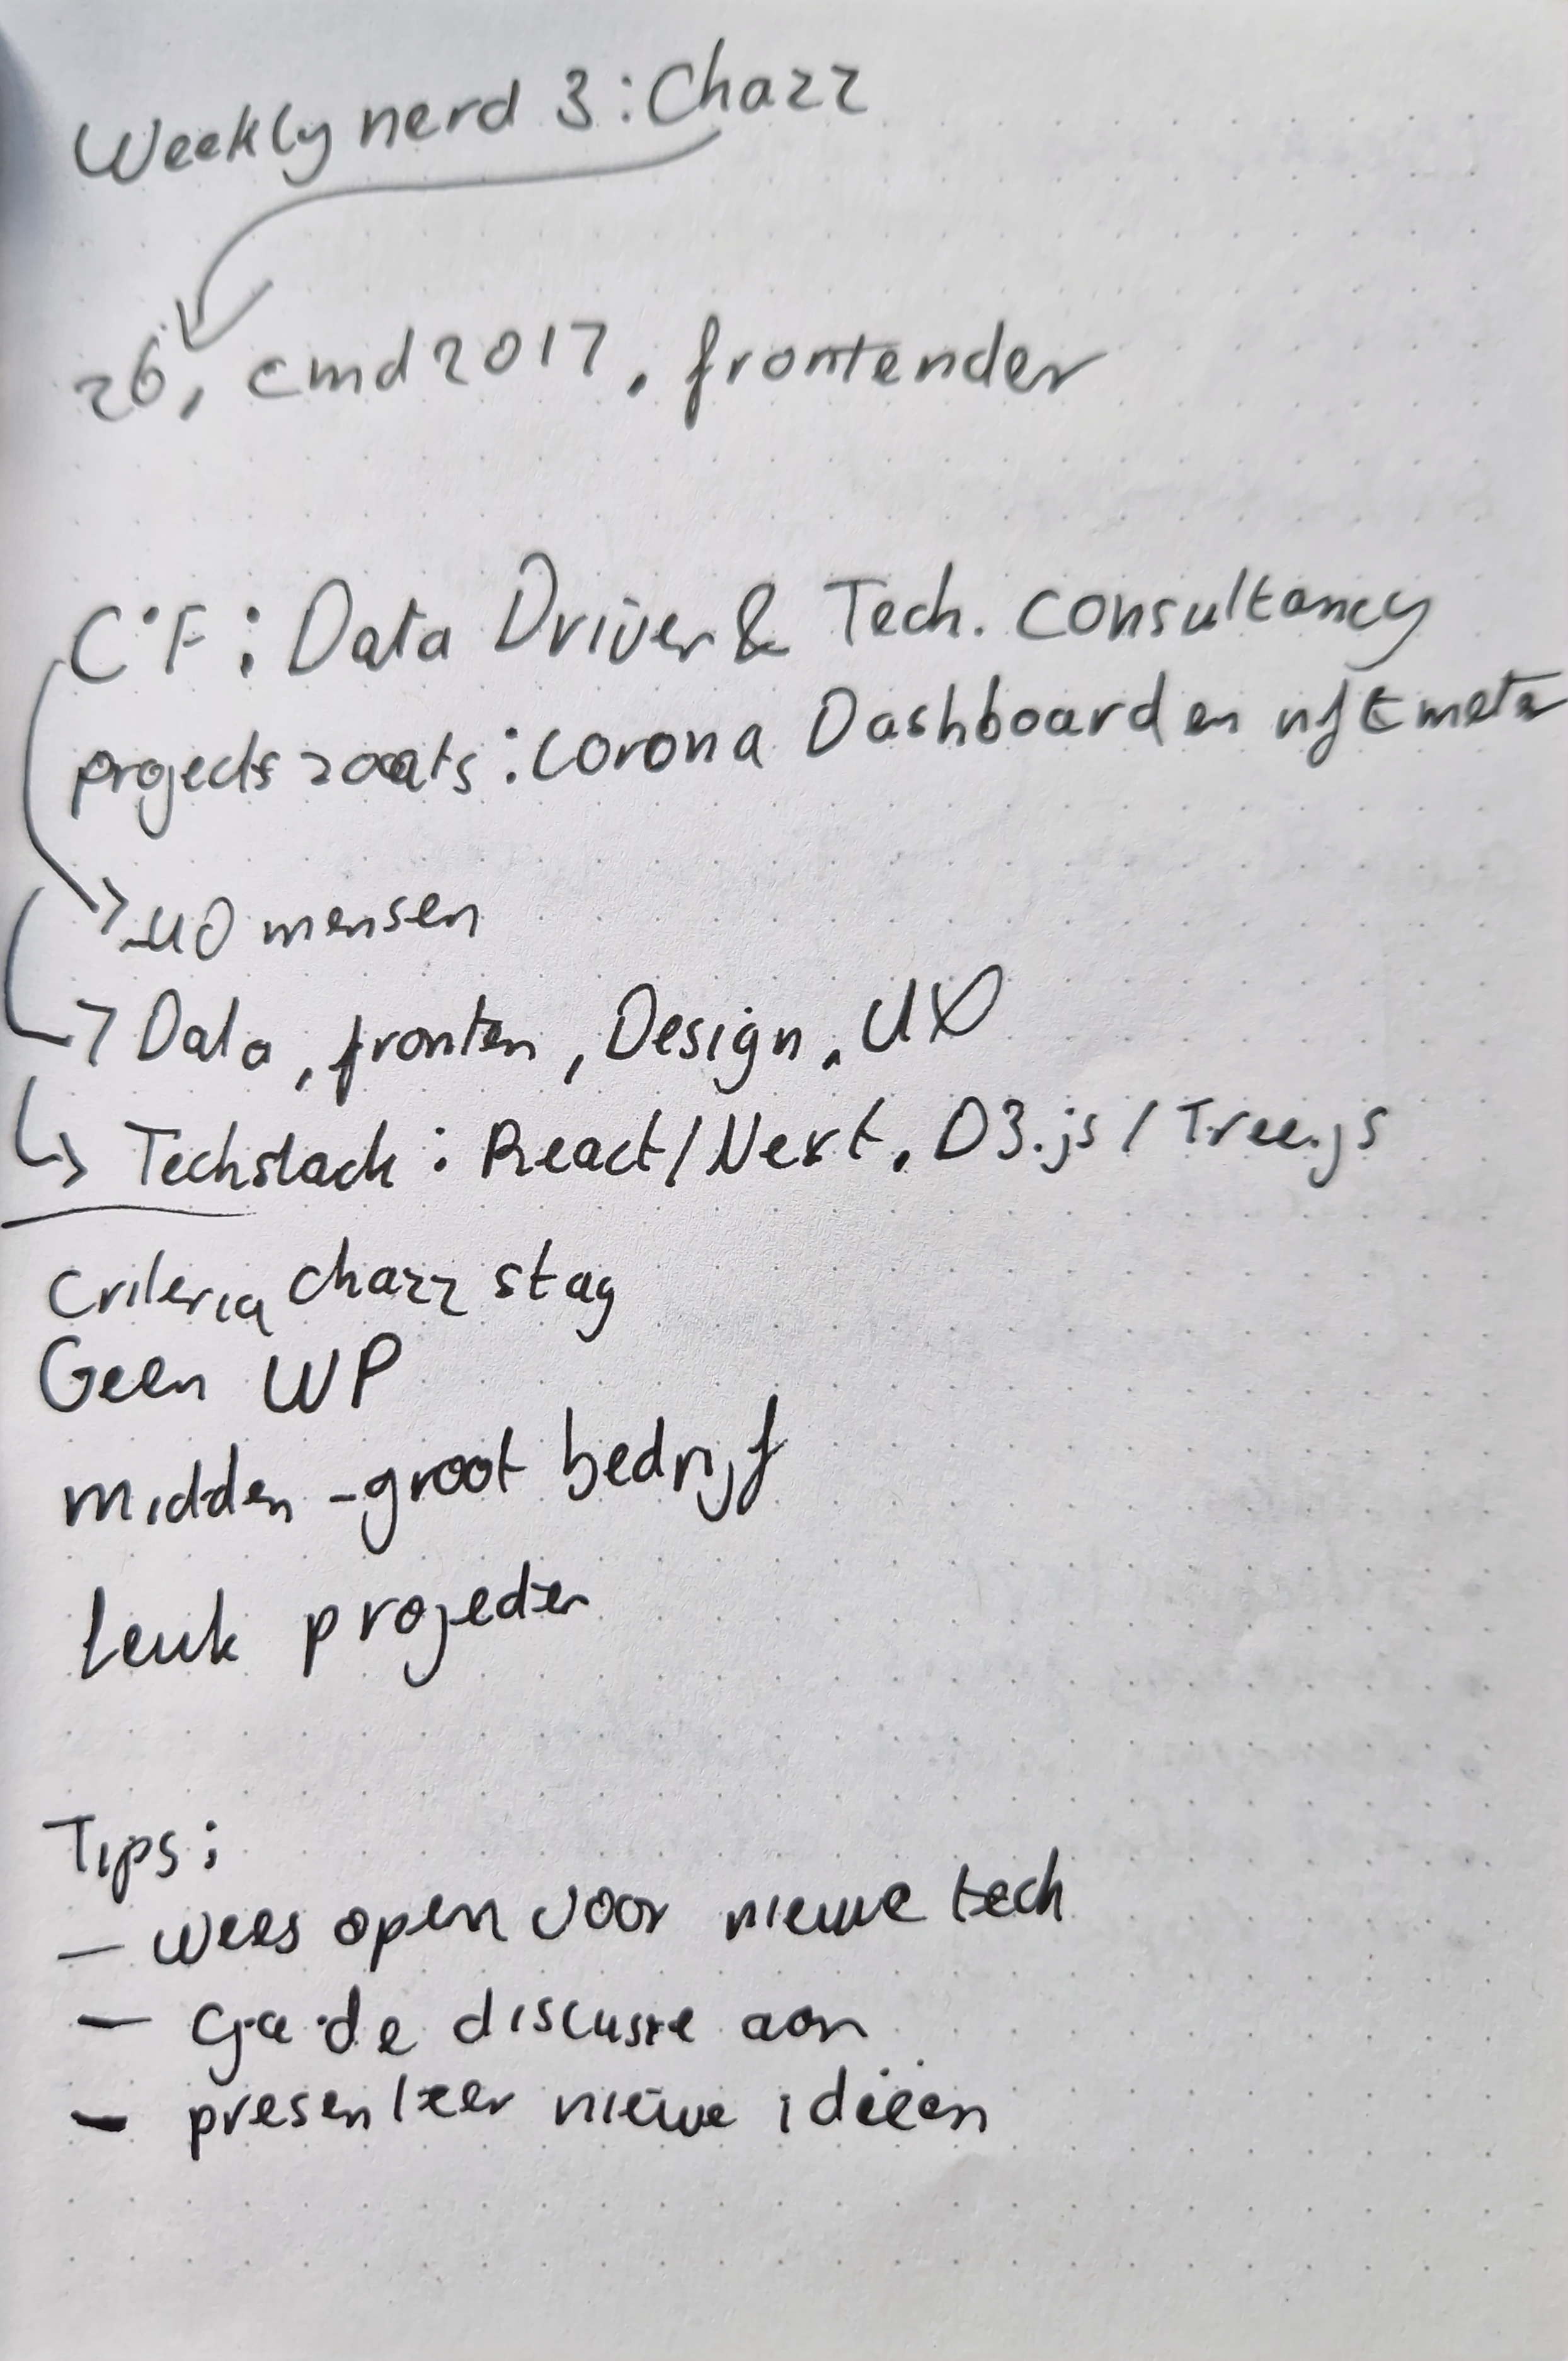 Weekly nerd 3: Chazz
26, cmd 2017, frontender
C°F: Data Driven & Tech. consultancy
projects zoals: corona Dashboard en nft meter
~40 mensen
Data, fronten, Design, UX
Techstack: React/Next, D3.js / Tree.js
Criteria chazz stag
Geen WP
midden-groot bedrijf
leuk projecten
Tips:
- wees open voor nieuwe tech
- ga de discussie aan
- presenteer nieuwe ideeën